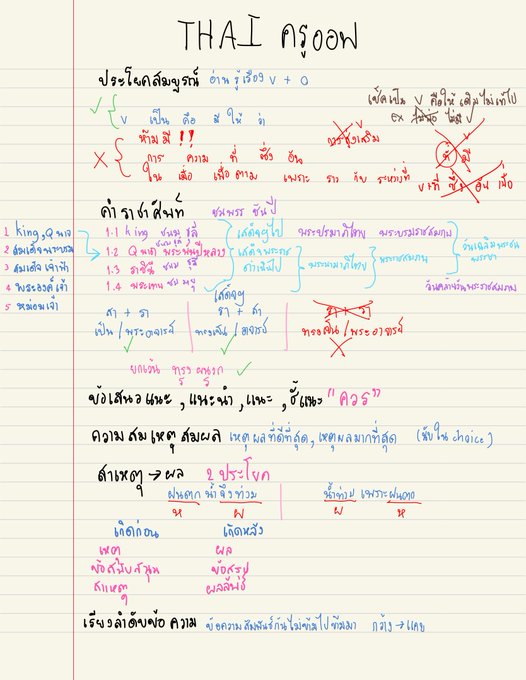 THAI ครูออฟ
ประโยคสมบูรณ์ อ่านรู้เรื่อง V + O
เช็คเป็น V คือให้เติมไม่เข้าไป
ex ไม่มี
V เป็น คือ มี ให้ ว่า
ห้ามมี !!
การ ความ ที่ ซึ่ง อัน
ใน เมื่อ เพื่อ ตาม เพราะ ราว กับ ระหว่างที่
ที่ มี
V+ที่ ซึ่ง อัน เมื่อ
คำราชาศัพท์ ชนพรร ชันปี
1 king, Q นาถ
2 สมเด็จพระบรม
3 สมเด็จเจ้าฟ้า
4 พระองค์เจ้า
5 หม่อมเจ้า
1.1 king
1.2 Q นาถ พระพันปีหลวง
1.3 ราชินี
1.4 พระเทพ
เสด็จฯไป พระปรมาภิไธย พระบรมราชสมภพ
เสด็จพระราชดำเนินไป พระนามาภิไธย พระราชสมภพ
วันเฉลิมพระชนมพรรษา
วันคล้ายวันพระราชสมภพ
เสด็จฯ
สา + รา
เป็น / พระอาจารย์
รา + สา
ทรงเป็น / อาจารย์
รา + รา
ทรงเป็น / พระอาจารย์
ยกเว้น ทรง ผนวก
ข้อเสนอแนะ , แนะนำ , แนะ , ชี้แนะ "ควร"
ความสมเหตุสมผล เหตุผลที่ดีที่สุด, เหตุผลมากที่สุด (นับใน choice)
สาเหตุ → ผล 2 ประโยค
ฝนตก น้ำจึงท่วม
ห ผ
น้ำท่วม เพราะฝนตก
ผ ห
เกิดก่อน เกิดหลัง
เหตุ ผล
ข้อสนับสนุน ข้อสรุป
สาเหตุ ผลลัพธ์
เรียงลำดับข้อความ ข้อความสัมพันธ์กันไม่ข้ามไปข้ามมา กว้าง → แคบ